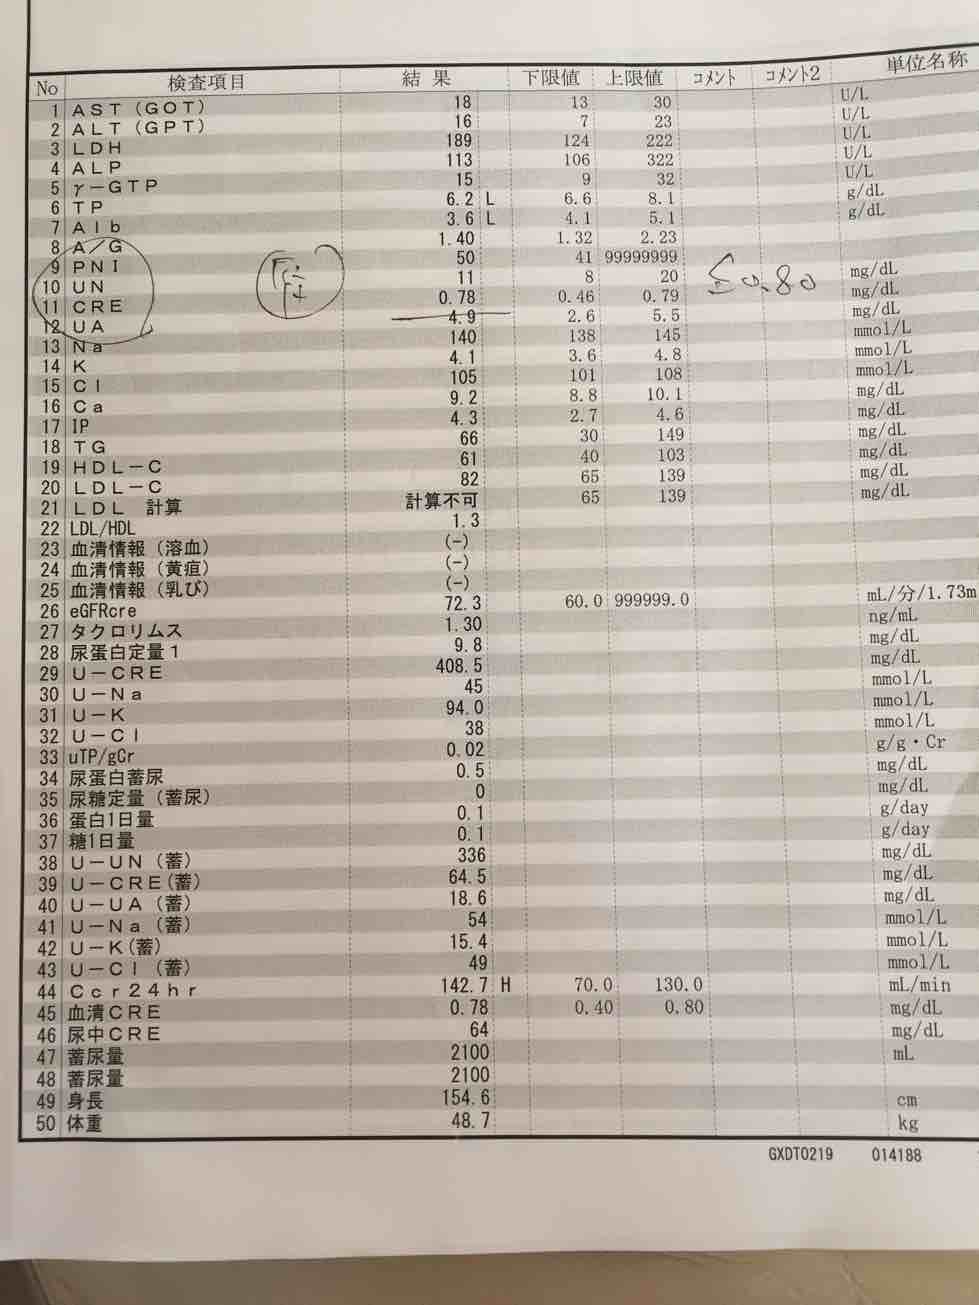 No 検査項目 結果 下限値 上限値 コメント コメント2 単位名称
1 AST(GOT) 18 13 30 U/L
2 ALT(GPT) 16 7 23 U/L
3 LDH 189 124 222 U/L
4 ALP 113 106 322 U/L
5 γ-GTP 15 9 32 U/L
6 TP 6.2 L 6.6 8.1 g/dL
7 Alb 3.6 L 4.1 5.1 g/dL
8 A/G 1.40 1.32 2.23
9 PNI 50 41 99999999
10 UN 11 8 20 mg/dL
11 CRE 0.78 0.46 0.79 mg/dL
≦0.80
12 UA 4.9 2.6 5.5 mg/dL
13 Na 140 138 145 mmol/L
14 K 4.1 3.6 4.8 mmol/L
15 Cl 105 101 108 mmol/L
16 Ca 9.2 8.8 10.1 mg/dL
17 IP 4.3 2.7 4.6 mg/dL
18 TG 66 30 149 mg/dL
19 HDL-C 61 40 103 mg/dL
20 LDL-C 82 65 139 mg/dL
21 LDL 計算 計算不可 65 139 mg/dL
22 LDL/HDL 1.3
23 血清情報(溶血) (-)
24 血清情報(黄疸) (-)
25 血清情報(乳び) (-)
26 eGFRcre 72.3 60.0 999999.0 mL/分/1.73m
27 タクロリムス 1.30 ng/mL
28 尿蛋白定量1 9.8 mg/dL
29 U-CRE 408.5 mg/dL
30 U-Na 45 mmol/L
31 U-K 94.0 mmol/L
32 U-Cl 38 mmol/L
33 uTP/gCr 0.02 g/g・Cr
34 尿蛋白蓄尿 0.5 mg/dL
35 尿糖定量(蓄尿) 0 mg/dL
36 蛋白1日量 0.1 g/day
37 糖1日量 0.1 g/day
38 U-UN(蓄) 336 mg/dL
39 U-CRE(蓄) 64.5 mg/dL
40 U-UA(蓄) 18.6 mg/dL
41 U-Na(蓄) 54 mmol/L
42 U-K(蓄) 15.4 mmol/L
43 U-Cl(蓄) 49 mmol/L
44 Ccr24hr 142.7 H 70.0 130.0 mL/min
45 血清CRE 0.78 0.40 0.80 mg/dL
46 尿中CRE 64 mg/dL
47 蓄尿量 2100 mL
48 蓄尿量 2100
49 身長 154.6 cm
50 体重 48.7 kg
GXDT0219 014188